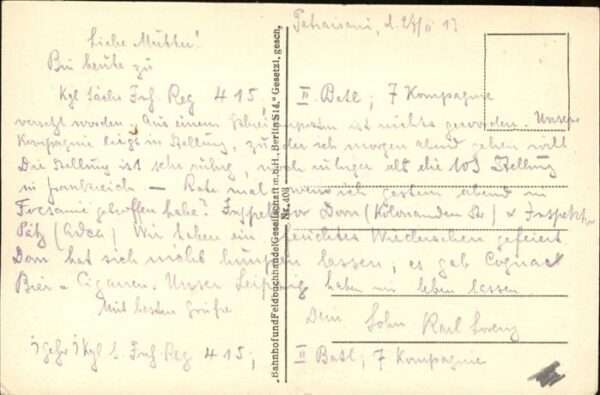 Liebe Mutter!
Bin heute zu
Kgl Sächs Inf. Reg 415, II Batl; 7 Kompagnie
worden. Aus einem ist nichts geworden. Unsere
Kompagnie liegt in Stellung, zu der ich morgen abend gehen will
Die Stellung ist sehr ruhig, noch ruhiger als die 103 Stellung
in Frankreich — Rate mal wen ich gestern abend in
Focsani getroffen habe? Inspektor Dorn (Kolonnaden Str) & Inspektor
Pätz (Adca) Wir haben ein feuchtes Wiedersehen gefeiert
Dorn hat sich nicht lumpen lassen, es gab Cognac
Bier - Cigarren. Unser Leipzig haben wir leben lassen
Mit besten Grüße
Dein Sohn Karl Lorenz
Kgl S Inf. Reg 415; II Batl; 7 Kompagnie
d. 24/
Bahnhof und Feldbuchhandel Gesellschaft m.b.H., Berlin S14." Gesetzl. gesch.
Nr. 408